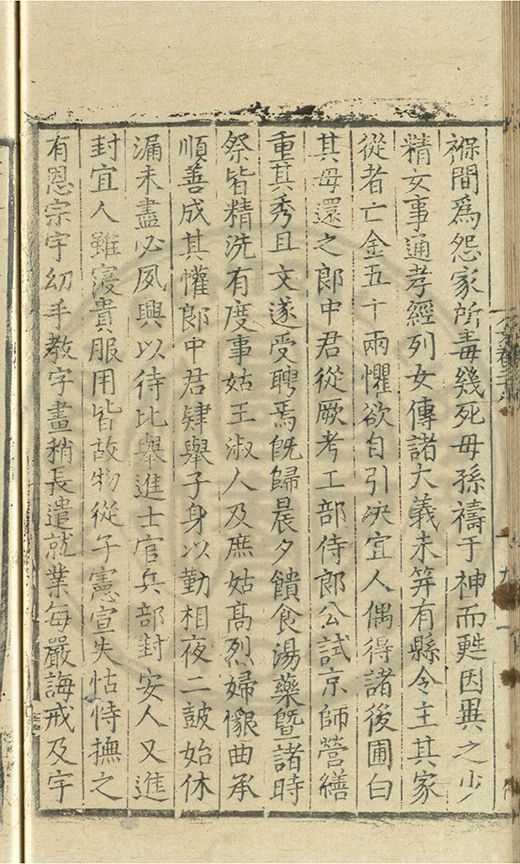 褓間爲怨家所毒幾死毋孫禱于神而甦因異之少
精女事通孝經列女傳諸大義未筓有縣令主其家
從者亡金五十兩懼欲自引决宜人偶得諸後圃白
其毋還之郎中君從厥考工部侍郎公試京師營繕
重其秀且文遂受聘焉旣歸晨夕饋食湯藥曁諸時
祭皆精洗有度事姑王淑人及庶姑高烈婦懇曲承
順善成其懽郎中君肄舉子身以勤相夜二鼓始休
漏未盡必夙興以待比舉進士官兵部封安人又進
封宜人雖寖貴服用皆故物從子憲宣失怙恃撫之
有恩宗宇幼手教字畫稍長遣就業每嚴誨戒及宇